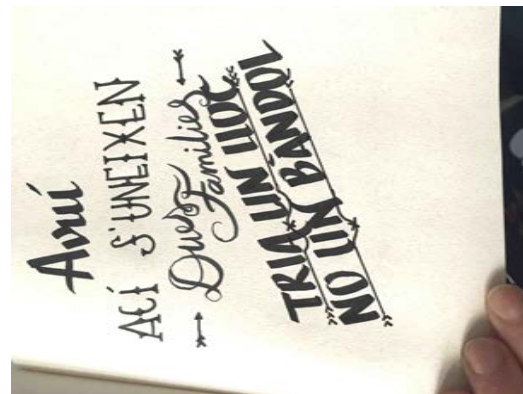 Avui
ACÍ S'UNEIXEN
Dues
Famílies
TRIA UN LLOC
NO UN BÀNDOL